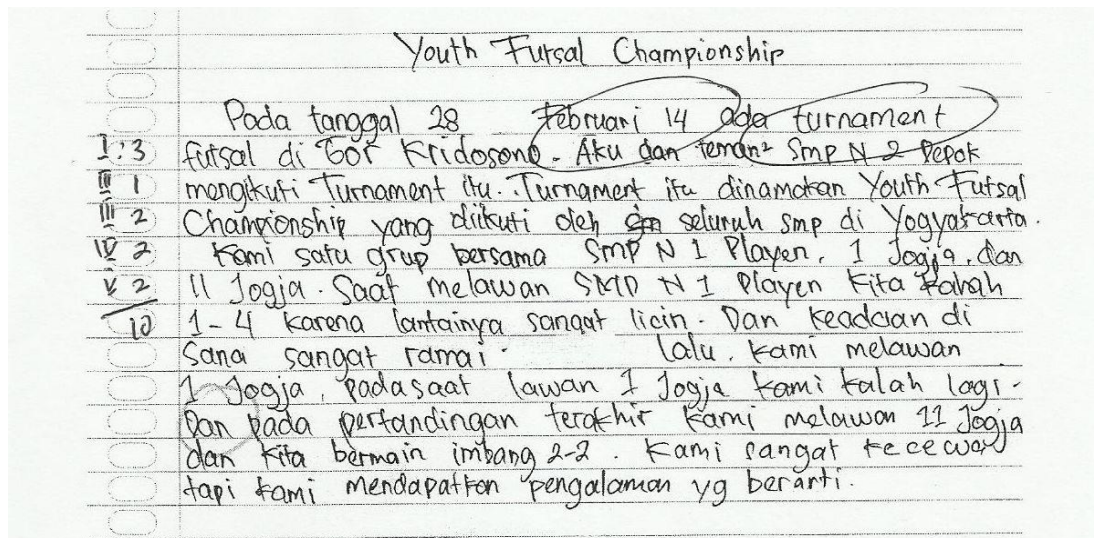 Youth Futsal Championship
Pada tanggal 28 Februari 14 ada turnament
I : 3 futsal di Gor Kridosono. Aku dan teman² Smp N 2 Depok
II 1 mengikuti Turnament itu. Turnament itu dinamakan Youth Futsal
III 2 Championship yang diikuti oleh seluruh smp di Yogyakarta.
IV 2 Kami satu grup bersama Smp N 1 Playen, 1 Jogja, dan
V 2 11 Jogja. Saat melawan SMP N 1 Playen Kita Kalah
10 1-4 karena lantainya sangat licin. Dan keadaan di
Sana sangat ramai. Lalu, kami melawan
1 Jogja, padasaat lawan 1 Jogja kami kalah lagi.
Dan pada pertandingan terakhir kami melawan 11 Jogja
dan kita bermain imbang 2-2. Kami sangat kecewa
tapi kami mendapatkan pengalaman yg berarti.